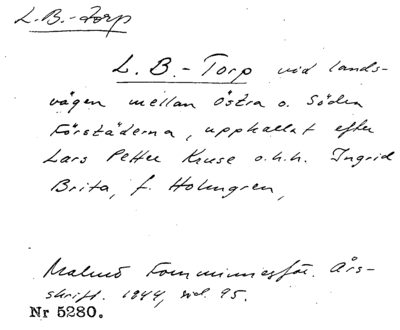 L. B.-Torp
L. B.-Torp vid lands-
vägen mellan Östra o. Södra
Förstäderna, uppkallat efter
Lars Petter Kruse o. h. h. Ingrid
Brita, f. Holmgren,
Malmö Fornminnesför. Års-
skrift. 1944, sid. 95.
Nr 5280.